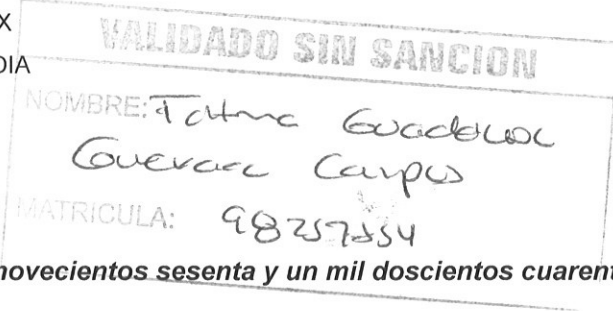 X
DIA
VALIDADO SIN SANCION
NOMBRE: Guadalupe
Guevara Campos
MATRICULA:
novecientos sesenta y un mil doscientos cuarent